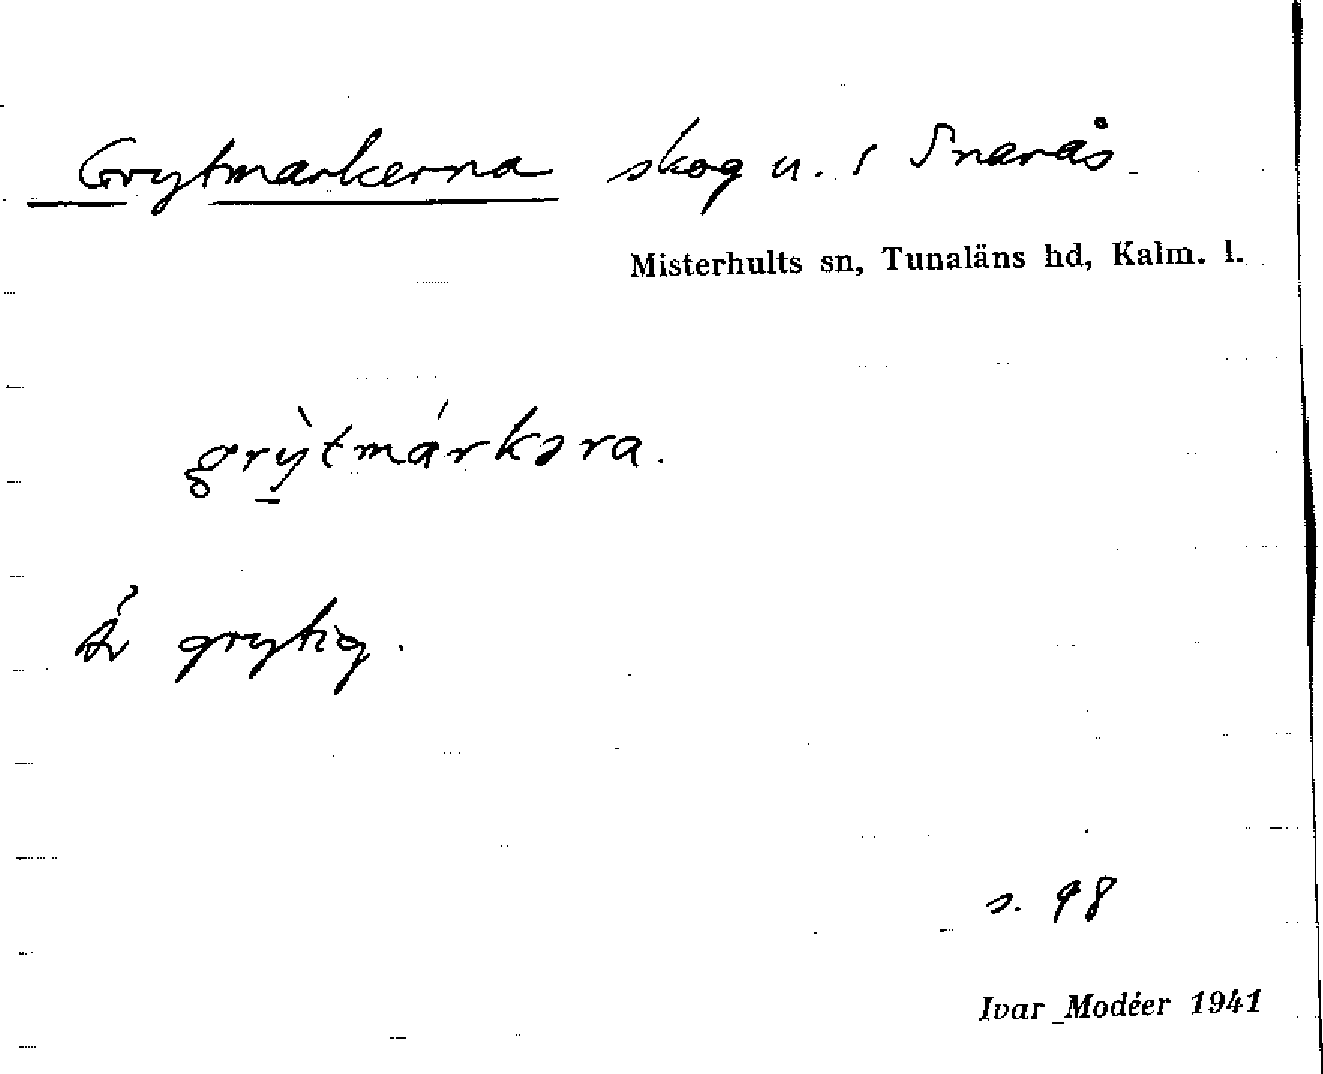 Grytmarkerna skog u. i Snarås
Misterhults sn, Tunaläns hd, Kalm. l.
grỳtmárkəra.
Är grytig.
s. 98
Ivar Modéer 1941